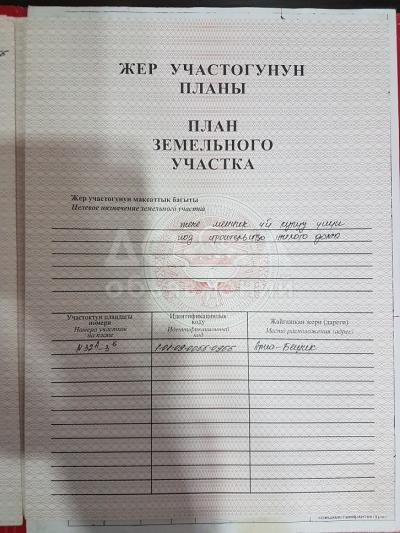 ЖЕР УЧАСТОГУНУН
ПЛАНЫ
ПЛАН
ЗЕМЕЛЬНОГО
УЧАСТКА
Жер участогунун максаттык багыты
Целевое назначение земельного участка
жеке менчик үй куруу үчүн
под строительство жилого дома
Участоктун пландагы
номери
Номера участков
на плане
Идентификациялык
коду
Идентификационный
код
Жайгашкан жери (дареги)
Место расположения (адрес)